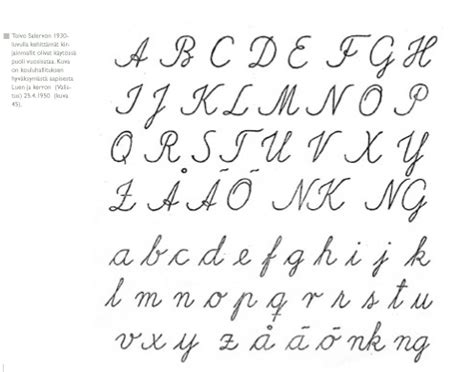 Toivo Salervon 1930-
luvulla kehittämät kir-
jainmallit olivat käytössä
puoli vuosisataa. Kuva
on kouluhallituksen
hyväksymästä aapisesta
Luen ja kerron (Valis-
tus) 25.4.1950 (kuva
45).
A B C D E F G H
I J K L M N O P
Q R S T U V X Y
Z Å Ä Ö NK NG
a b c d e f g h i j k
l m n o p q r s t u
v x y z å ä ö nk ng